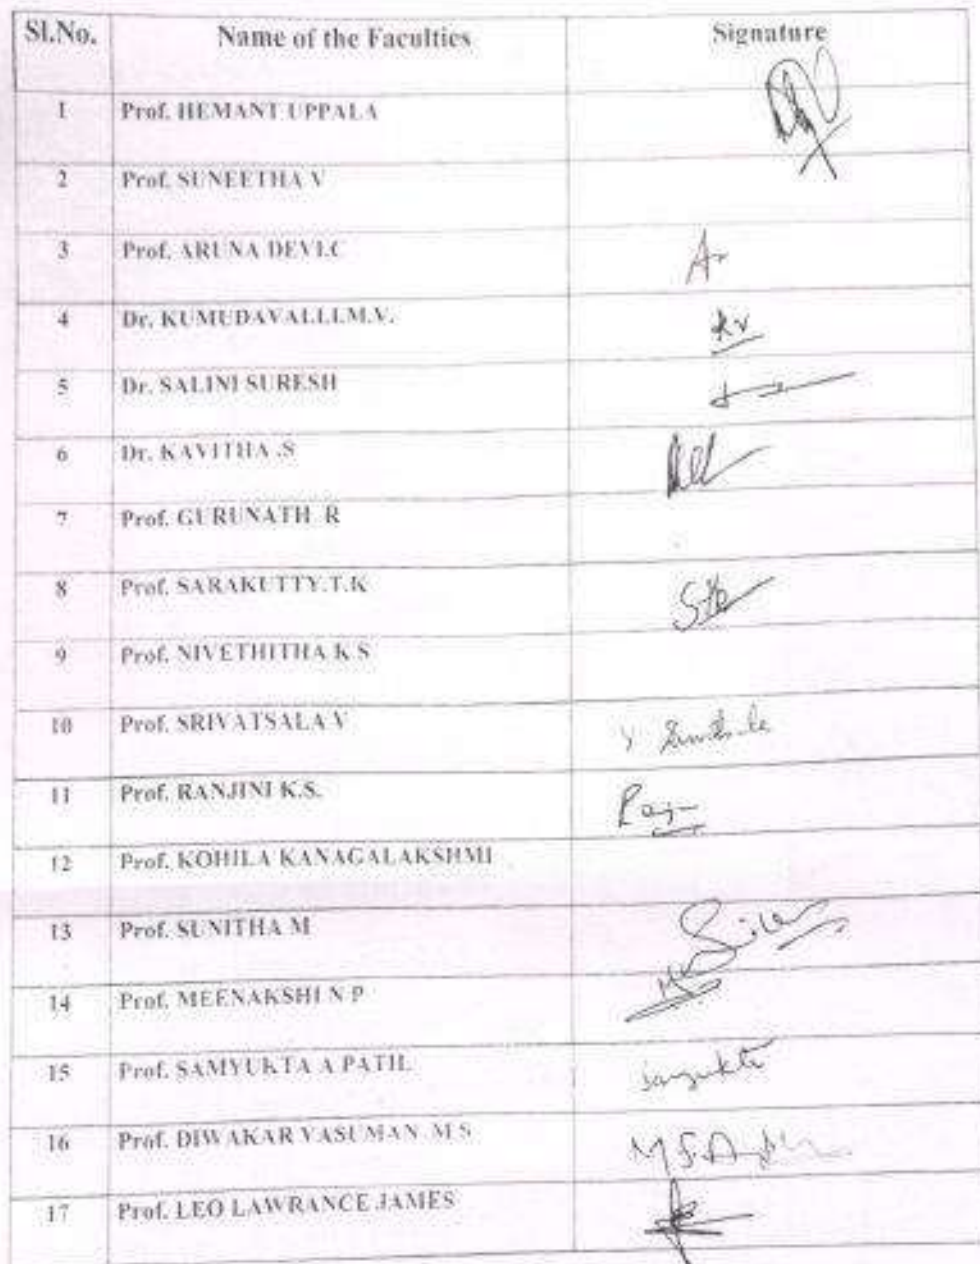 Sl.No. Name of the Faculties Signature
1 Prof. HEMANT UPPALA
2 Prof. SUNEETHA V
3 Prof. ARUNA DEVI.C
4 Dr. KUMUDAVALLI.M.V.
5 Dr. SALINI SURESH
6 Dr. KAVITHA .S
7 Prof. GURUNATH R
8 Prof. SARAKUTTY.T.K
9 Prof. NIVETHITHA K S
10 Prof. SRIVATSALA V
11 Prof. RANJINI K.S.
12 Prof. KOHILA KANAGALAKSHMI
13 Prof. SUNITHA M
14 Prof. MEENAKSHI N P
15 Prof. SAMYUKTA A PATIL Samyukta
16 Prof. DIWAKAR VASUMAN M S
17 Prof. LEO LAWRANCE JAMES